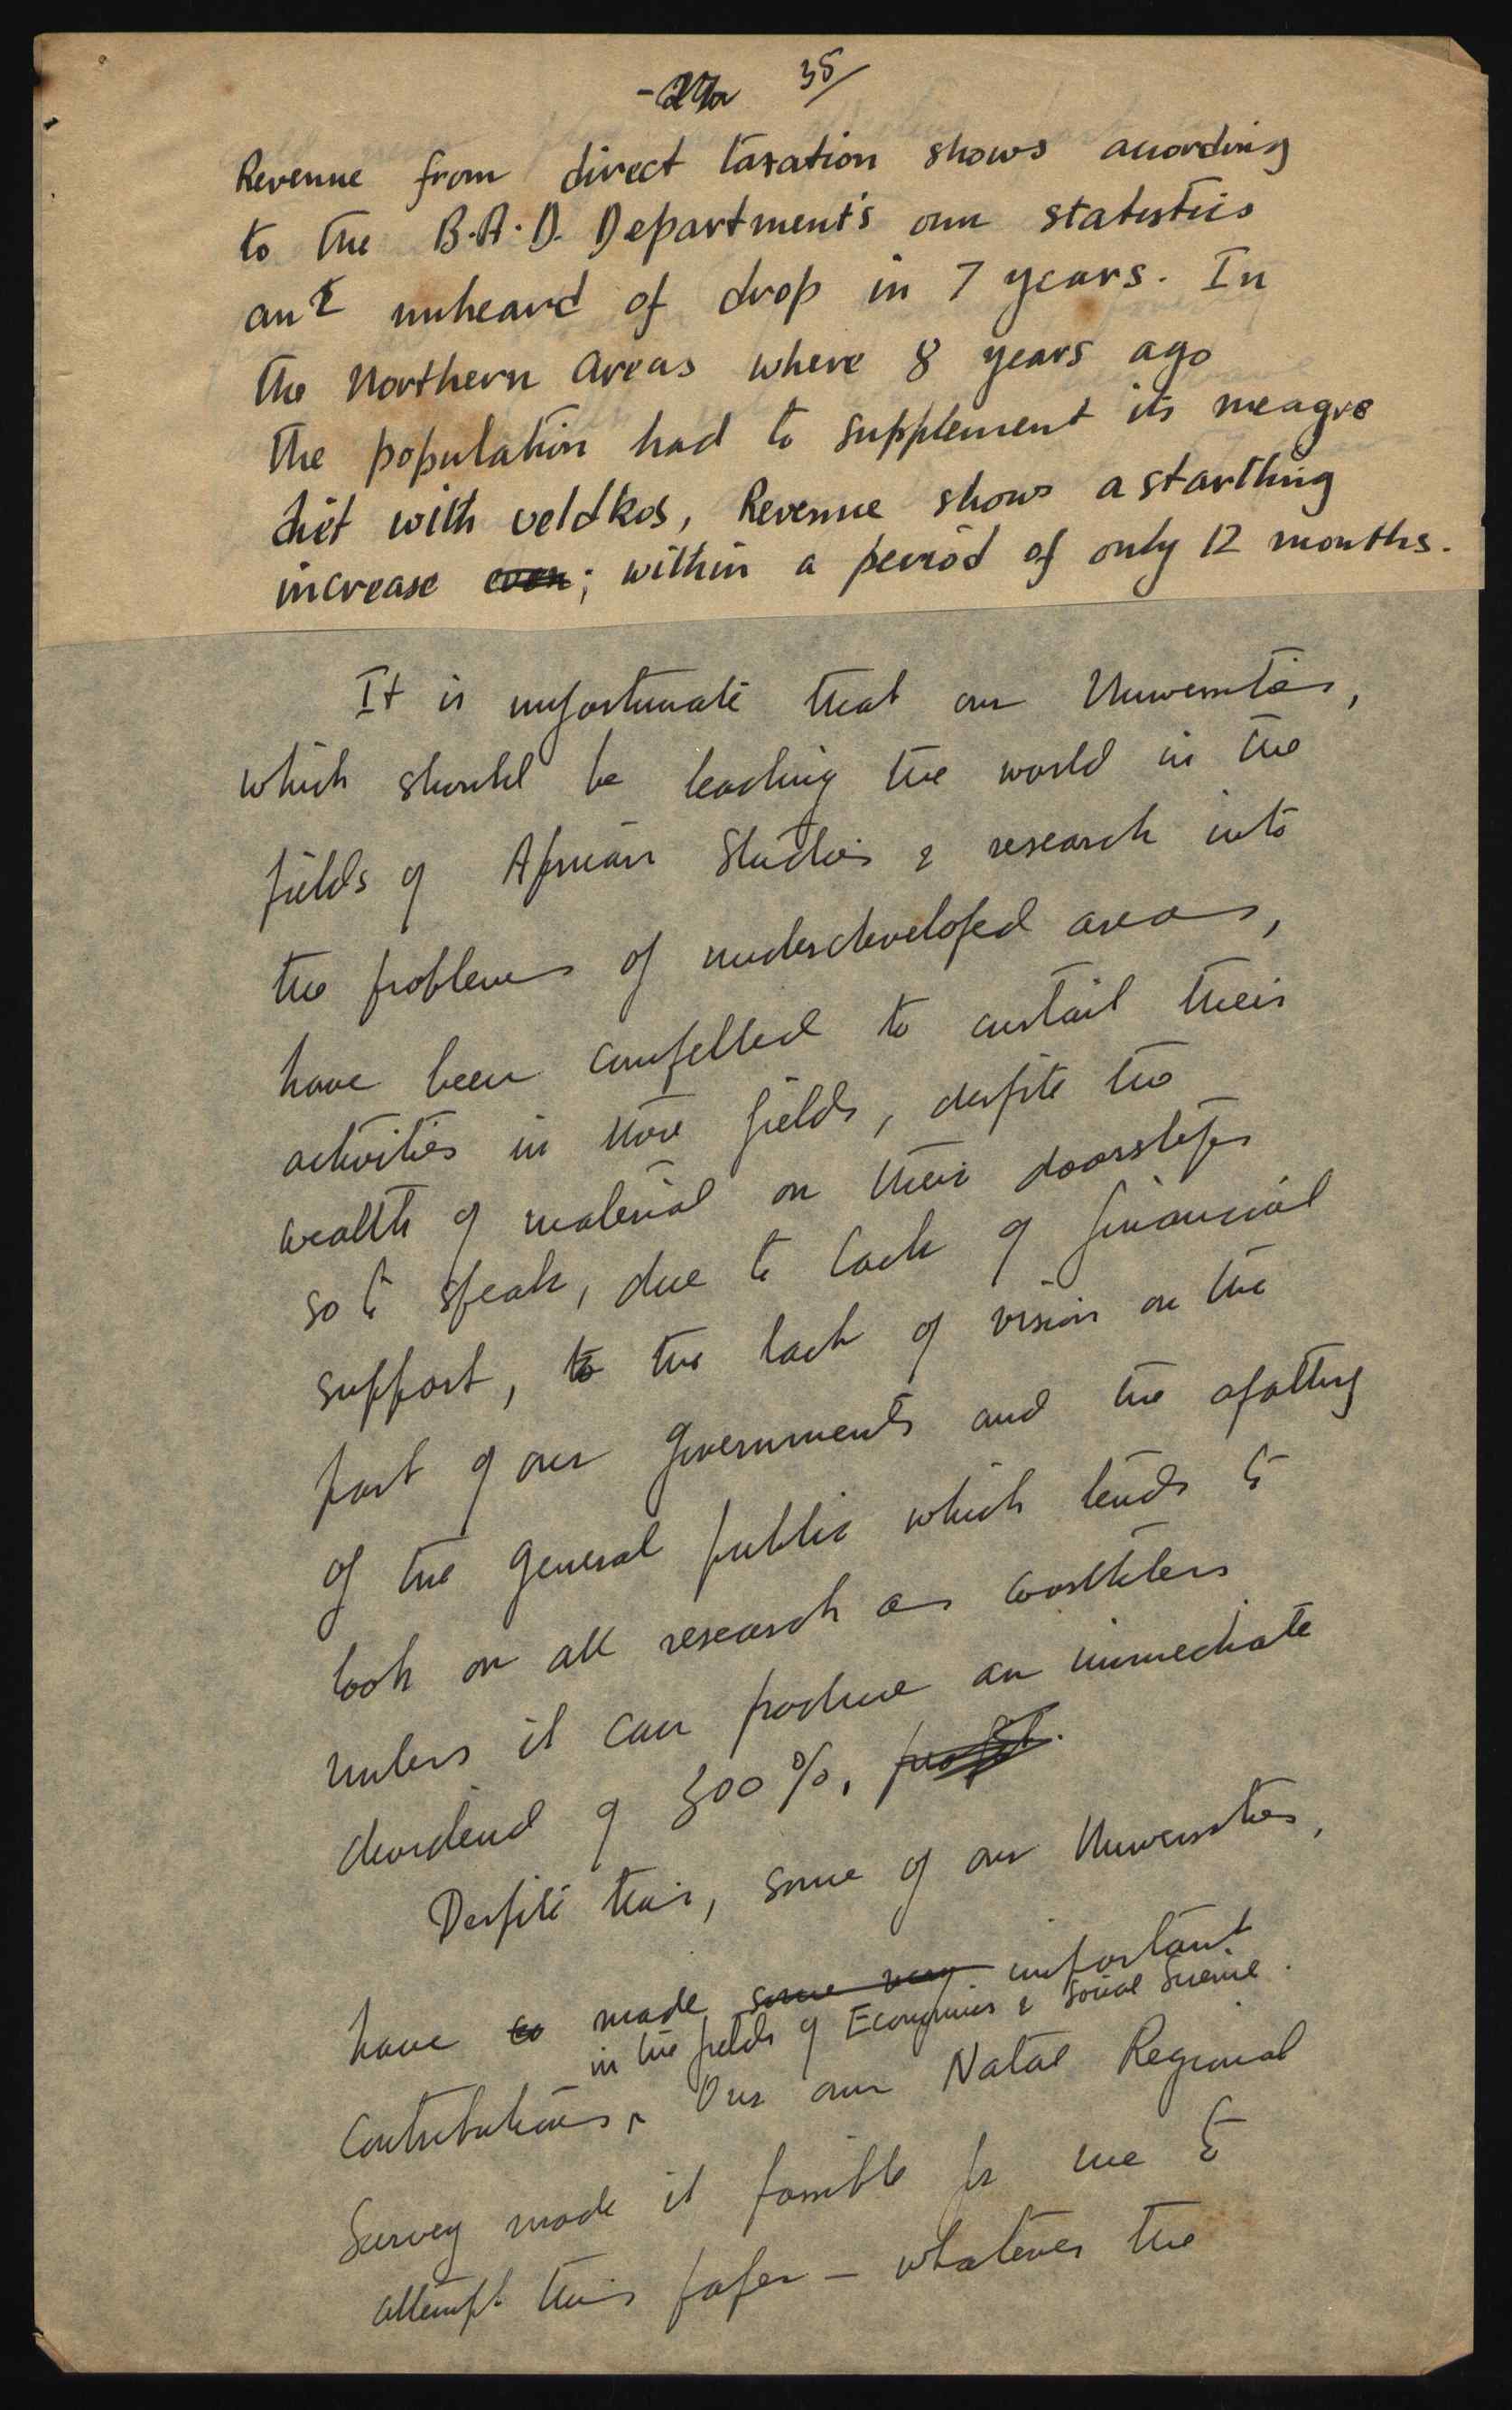 35/
Revenue from direct taxation shows according
to the B.A.D. Department's own statistics
an unheard of drop in 7 years. In
the Northern Areas where 8 years ago
the population had to supplement its meagre
diet with veldkos, Revenue shows a starthing
increase even; within a period of only 12 months.
It is unfortunate that our Universities,
which should be leading the world in the
fields of African Studies & research into
the problems of underdeveloped areas,
have been compelled to curtail their
activities in these fields, despite the
wealth of material on their doorsteps
so to speak, due to lack of financial
support, to the lack of vision on the
part of our Governments and the apathy
of the General public which tends to
look on all research as worthless
unless it can produce an immediate
dividend of 300%. profit.
Despite this, some of our Universities,
have made some very important
in the fields of Economics & Social Science.
Contributions, Our own Natal Regional
Survey made it possible for me to
attempt this paper - whatever the